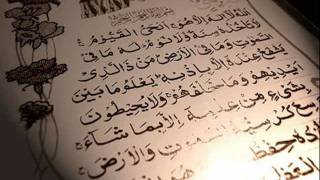 اَللّٰهُ لَا اِلٰهَ اِلَّا هُوَ اَلْحَيُّ الْقَيُّومُ
لَا تَأْخُذُهُ سِنَةٌ وَلَا نَوْمٌ لَهُ مَا فِي
السَّمٰوَاتِ وَمَا فِي الْاَرْضِ مَنْ ذَا الَّذِي
يَشْفَعُ عِنْدَهُ اِلَّا بِاِذْنِهِ يَعْلَمُ مَا بَيْنَ
اَيْدِيهِمْ وَمَا خَلْفَهُمْ وَلَا يُحِيطُونَ
بِشَيْءٍ مِنْ عِلْمِهِ اِلَّا بِمَا شَاءَ
وَسِعَ كُرْسِيُّهُ السَّمٰوَاتِ وَالْاَرْضَ